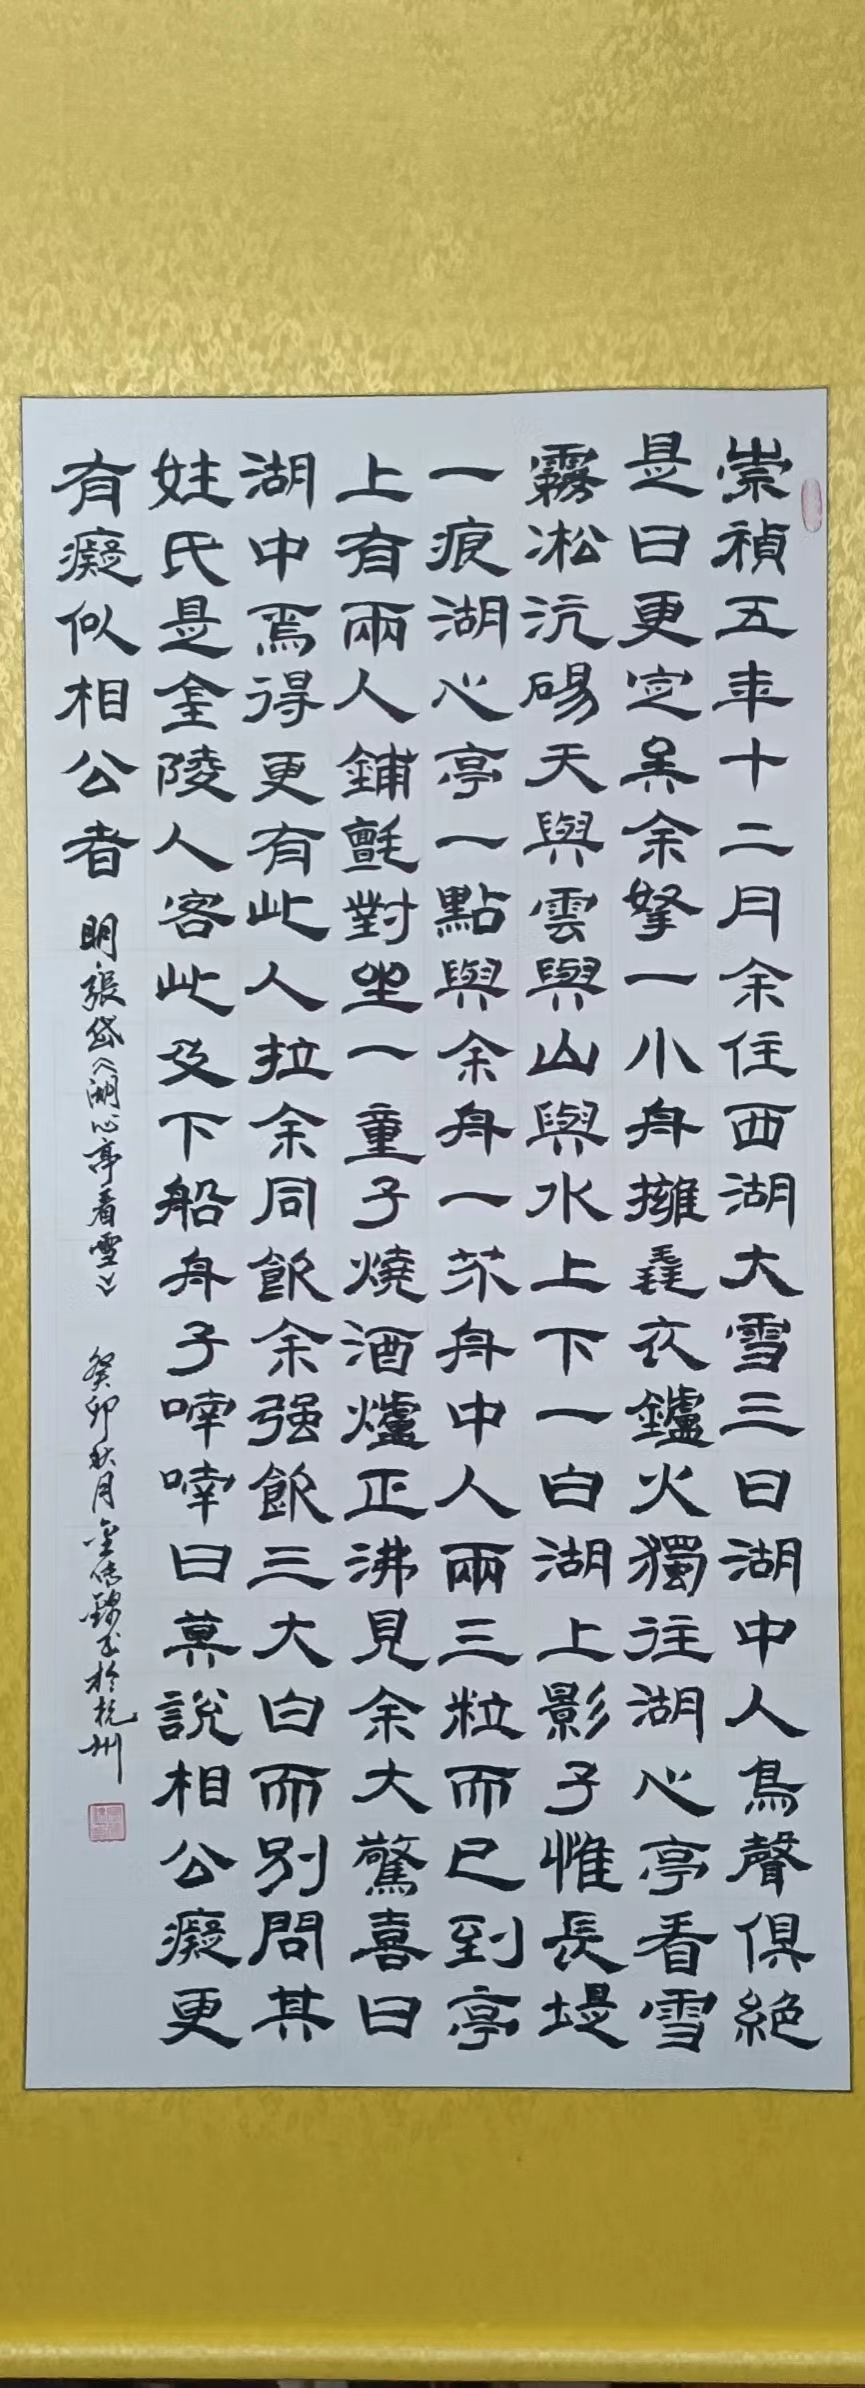 崇禎五年十二月余住西湖大雪三日湖中人鳥聲俱絕
是日更定矣余拏一小舟擁毳衣鑪火獨往湖心亭看雪
霧凇沆碭天與雲與山與水上下一白湖上影子惟長堤
一痕湖心亭一點與余舟一芥舟中人兩三粒而已到亭
上有兩人鋪氈對坐一童子燒酒爐正沸見余大驚喜曰
湖中焉得更有此人拉余同飲余强飲三大白而別問其
姓氏是金陵人客此及下船舟子喃喃曰莫說相公癡更
有癡似相公者
明·張岱《湖心亭看雪》
癸卯秋月金傳錦書於杭州